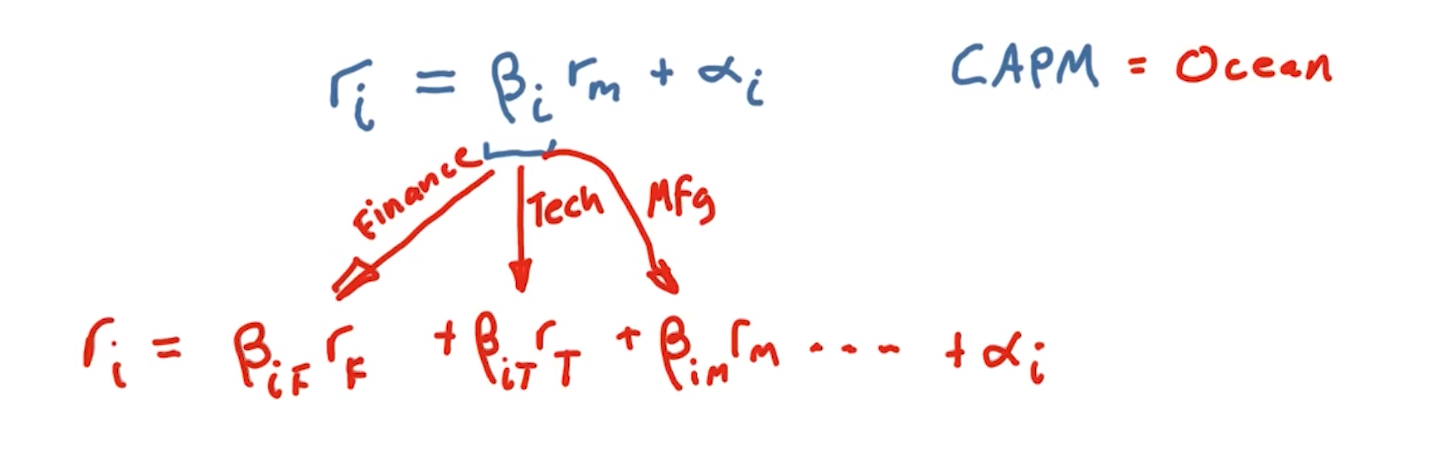 rᵢ = βᵢ rₘ + αᵢ
CAPM = Ocean
Finance
Tech
Mfg
rᵢ = β_{iF} r_F + β_{iT} r_T + β_{iM} r_M .... + αᵢ